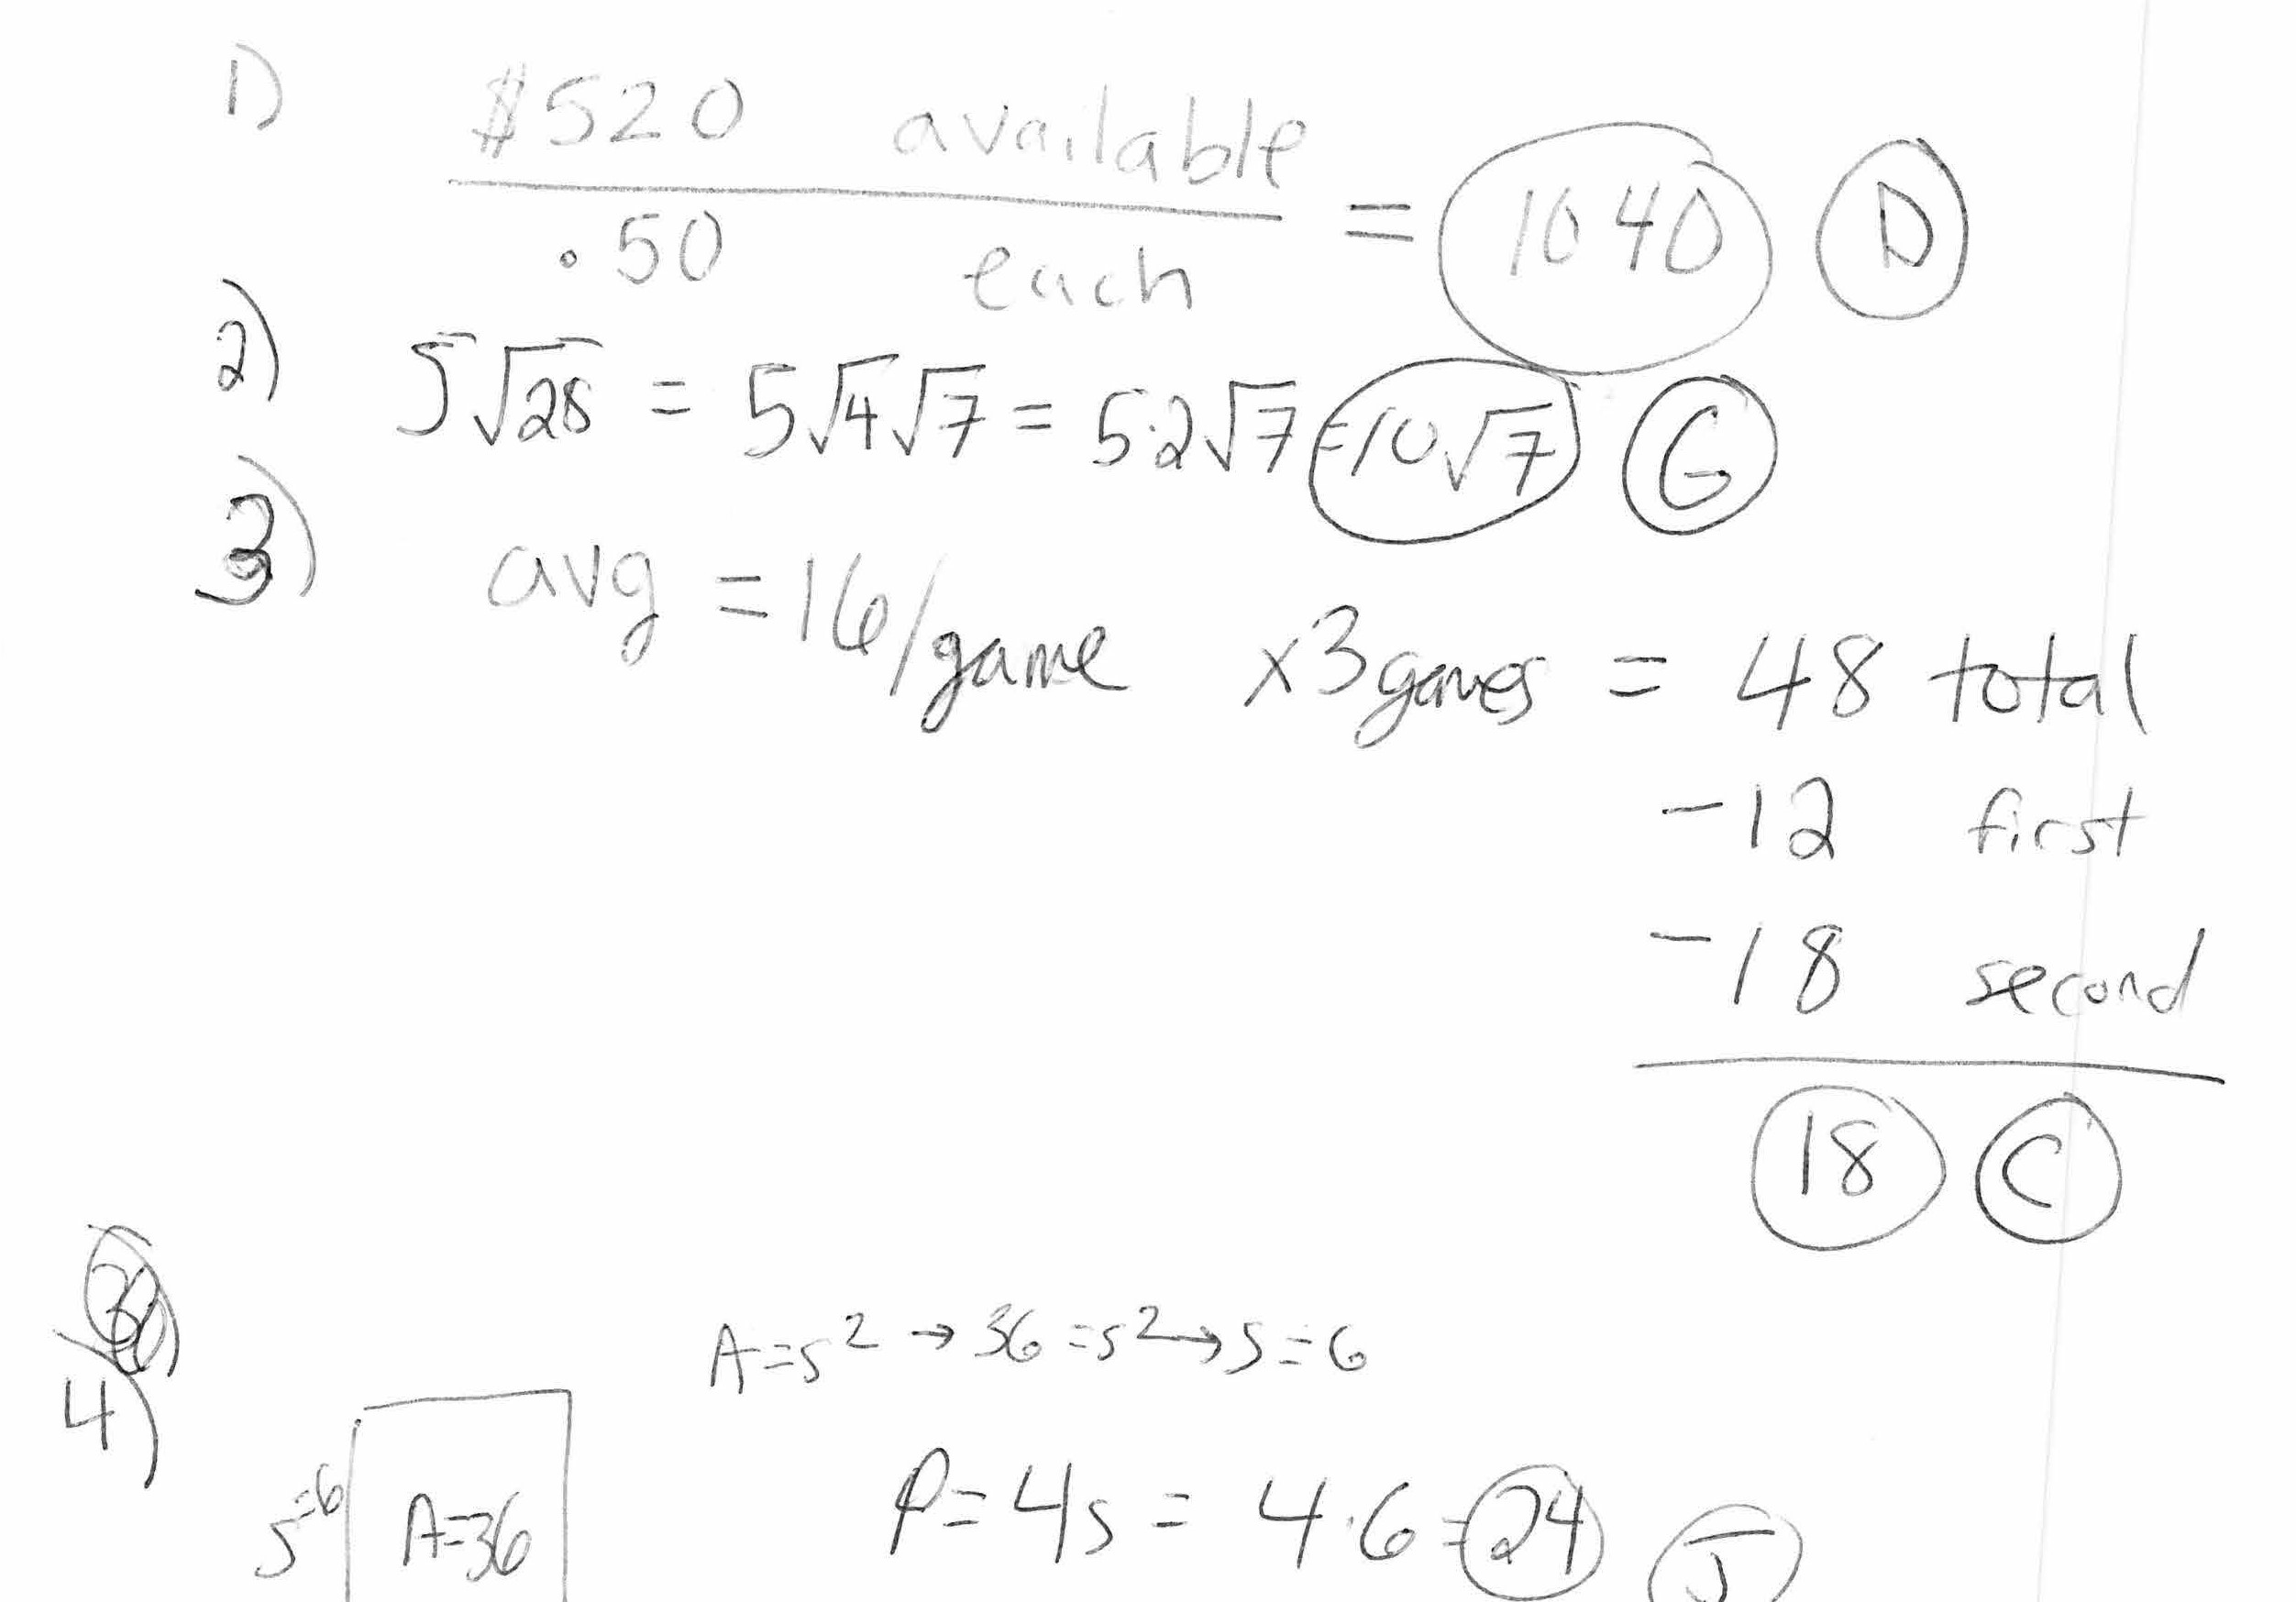 1) $520 available
.50 each = 1040 D
2) 5√28 = 5√4√7 = 5·2√7 =10√7 G
3) avg = 16/game x3games = 48 total
-12 first
-18 second
18 C
4) A=s² → 36=s² → s=6
s=6 A=36 P=4s = 4·6=24 J